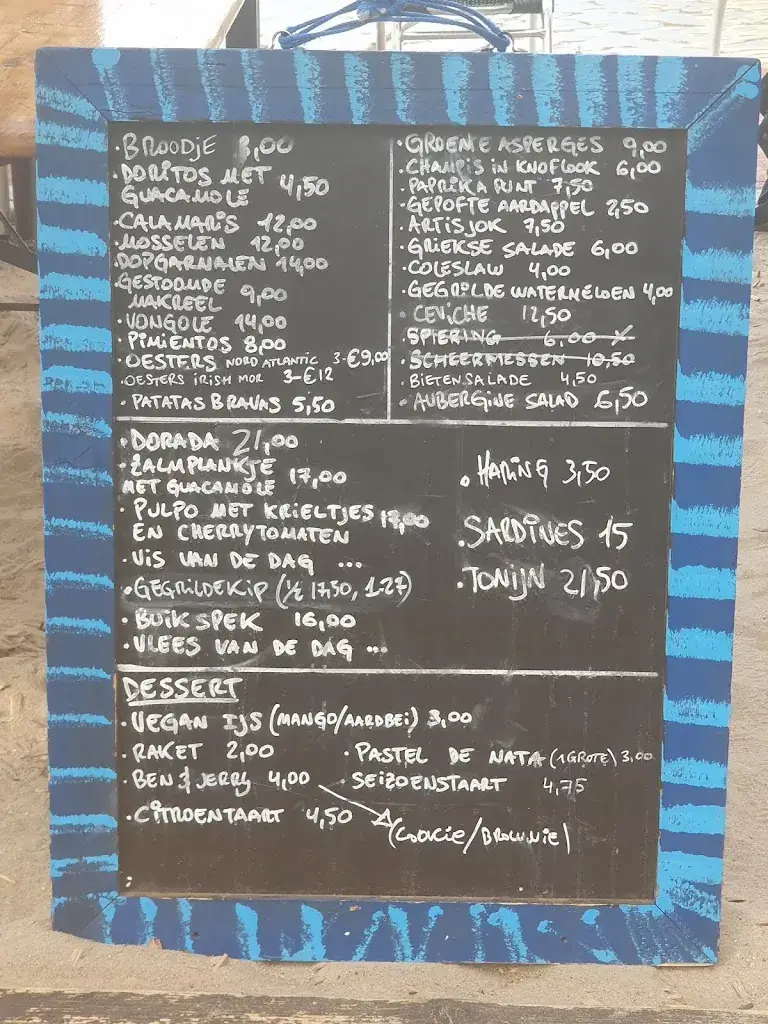 · BROODJE 8,00
· DORITOS MET
GUACAMOLE 4,50
· CALAMARIS 12,00
· MOSSELEN 12,00
· DOPGARNALEN 14,00
· GESTOOMDE
MAKREEL 9,00
· VONGOLE 14,00
· PIMIENTOS 8,00
· OESTERS NORD ATLANTIC 3-€9,00
· OESTERS IRISH MOR 3-€12
· PATATAS BRAVAS 5,50
· GROENE ASPERGES 9,00
· CHAMPIS IN KNOFLOOK 6,00
· PAPRIKA PUNT 7,50
· GEPOFTE AARDAPPEL 2,50
· ARTISJOK 7,50
· GRIEKSE SALADE 6,00
· COLESLAW 4,00
· GEGRILDE WATERMELOEN 4,00
· CEVICHE 12,50
· SPIERING 6,00
· SCHEERMESSEN 10,50
· BIETENSALADE 4,50
· AUBERGINE SALAD 6,50
· DORADA 21,00
· ZALMPLANKJE
MET GUACAMOLE 17,00
· PULPO MET KRIELTJES 17,00
EN CHERRYTOMATEN
· VIS VAN DE DAG ...
· GEGRILDE KIP (½ 17,50, 1.27)
· BUIKSPEK 16,00
· VLEES VAN DE DAG ...
· HARING 3,50
· SARDINES 15
· TONIJN 21,50
DESSERT
· VEGAN IJS (MANGO/AARDBEI) 3,00
· RAKET 2,00
· BEN & JERRY 4,00
· CITROENTAART 4,50
· PASTEL DE NATA (1 GROTE) 3,00
· SEIZOENSTAART 4,75
(COOKIE/BROWNIE)